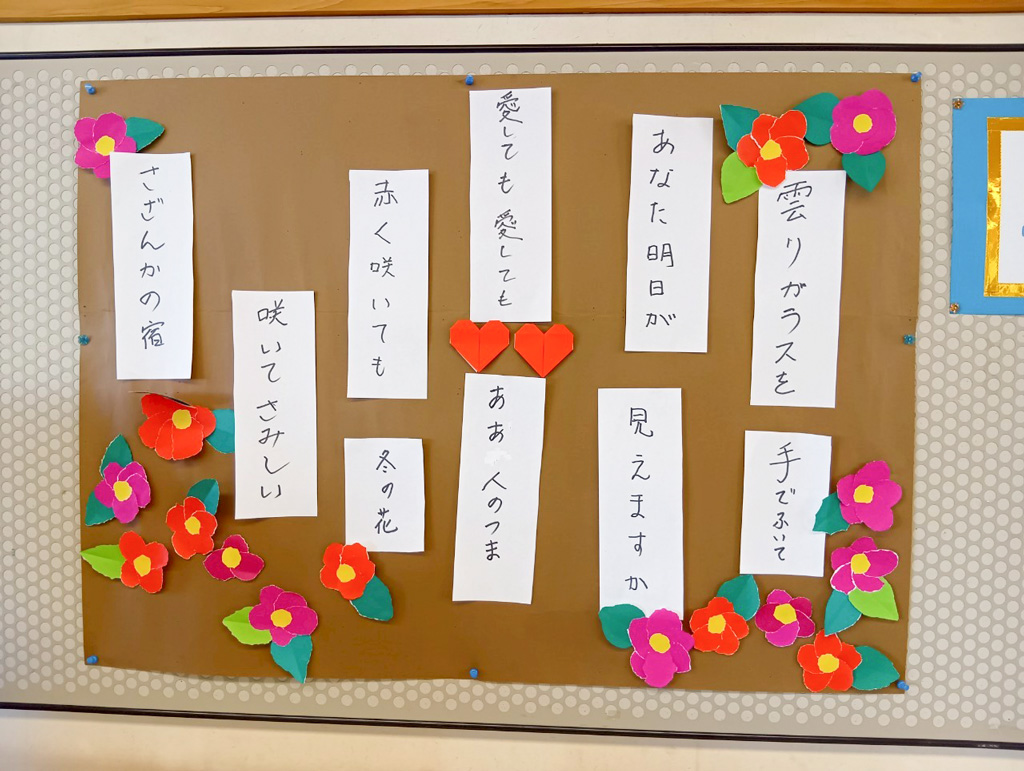 雲りガラスを
手でふいて
あなた明日が
見えますか
愛しても愛しても
ああ人のつま
赤く咲いても
冬の花
咲いてさみしい
さざんかの宿